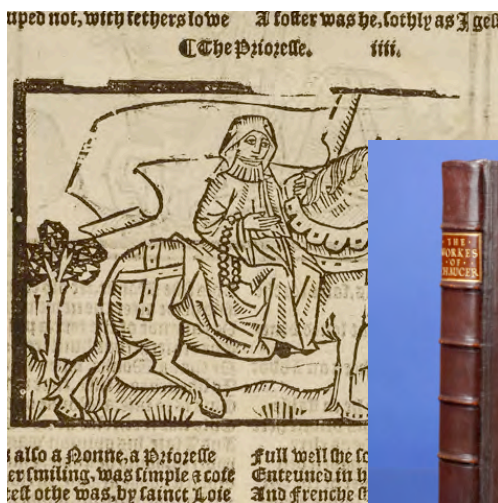 uped not, with fethers lowe
A foster was he, sothly as I gess
¶ The Prioresse. iiii.
THE
WORKES
OF
CHAUCER
also a Nonne, a Prioresse
er smiling, was simple & coie
test othe was, by sainct Loie
Full well she so
Enteuned in h
And Frenche s